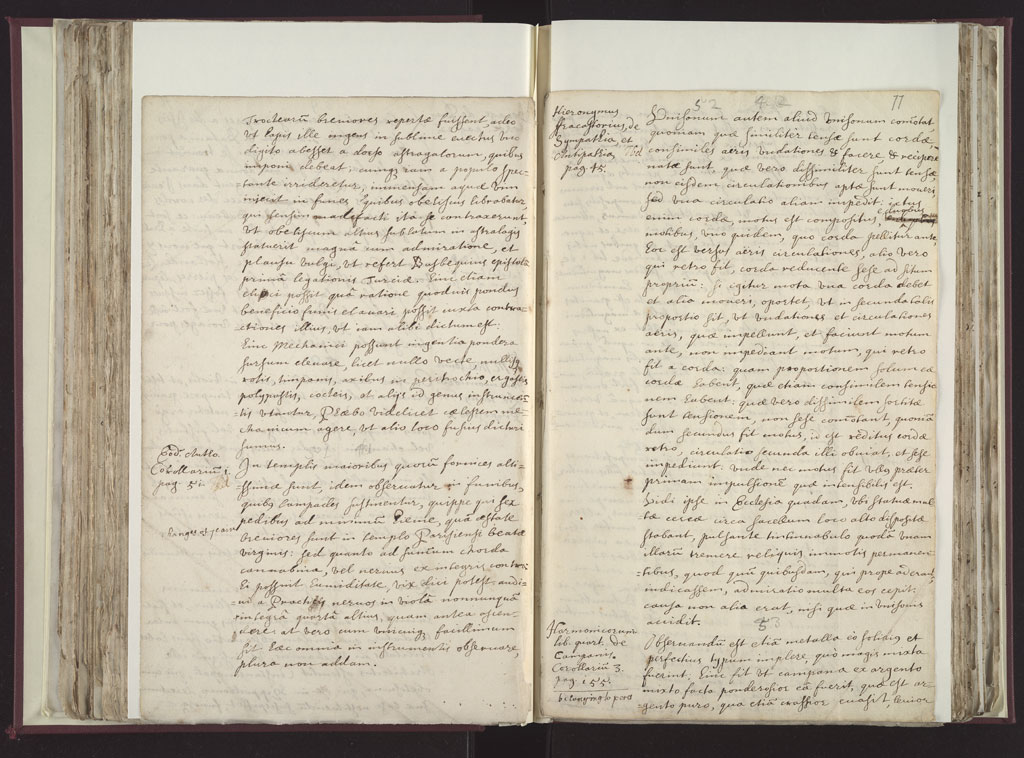 Trocleæ breviores repertæ fuissent, adeo
Vt lapis ille ingens in sublime evectus vno
digito abesset a dorso astragalorum, quibus
imponi debeat, cumq; rem a populo spec-
-tante irrideretur, immensam aquæ vim
iniecit in funes, quibus obeliscus librabatur,
qui sensim madefacti ita se contraxerunt,
Vt obeliscum altius sublatum in astragalis
statuerit magnâ cum admiratione, et
plausu vulgi, vt refert Busbequius epistolâ
primâ legationis Turciæ. Hinc etiam
elici possit quâ ratione quoduis pondus
beneficio funis eleuari possit iuxta contra-
ctiones illius, vt iam alibi dictum est:
Hinc Mechanici possunt ingentia pondera
sursum eleuare, licet nullo vecte nullisq;
rotis, timpanis, axibus in peritrochio, ergatis
polyspastis, cocleis, et alijs id genus instrumen-
tis vtantur,
chanicum agere, vt alio loco fusius dicturi
sumus.
Cod. Autho.
Corollarium i
pag. 51.
In templis maioribus quorū fornices altis-
ssimæ sunt, idem obseruatur in funibus,
quibus lampades sustinentur, quippe qui sex
pedibus ad minimū hieme, quâ æstate
breuiores sunt in templo Parisiensi beatæ
virginis: sed quanto ad summum chorda
cannabina, vel neruus ex integris contra-
hi possint humiditate, vix dici potest: audi-
-ui a Practicis neruos in violâ nonnunquā
integrâ quartâ altius, quam antea ascen-
dere: at vero cum vnicuiq; facillimum
sit hæc omnia in instrumentis obseruare,
plura non addam.
77
52
Hieronymus
fracastorius, de
Sympathia et
Antipathia,
pag. 45.
Vnisonum autem aliud vnisonum comotat
quoniam quæ similiter tensæ sunt cordæ
consimiles aëris vndationes & facere, & recipere
natæ sunt, quæ vero dissimiliter sunt tensæ,
non eisdem circulationibus aptæ sunt moueri
sed vna circulatio aliam impedit: ictus
enim cordæ, motus est compositus, e duobus
motibus, vno quidem, quo corda pellitur ante,
hoc est versus aëris circulationes, alio vero
qui retro fit, corda reducente sese ad situm
propriū: si igitur mota vna corda debet
et alia moueri, oportet, vt in secunda talis
proportio sit, vt vndationes et circulationes
aëris, quæ impellunt, et faciunt motum
ante, non impediant motum, qui retro
fit a corda: quam proportionem solum eæ
cordæ habent, quæ etiam consimilem tensio
nem habent: quæ vero dissimilem sortitæ
sunt tensionem, non sese comotant, quoniā
dum secundus fit motus, id est reditus cordæ
retro, circulatio secunda illi obuiat, et sese
impediunt. Vnde nec motus fit vllus præter
primam impulsionē quæ insensibilis est.
Vidi ipse in Ecclesia quadam, vbi statuæ mul
tæ cereæ circa sacellum loco alto dispositæ
stabant, pulsante tintinnabulo quodā vnam
illarū tremere reliquis immotis permanen-
-tibus, quod quū quibusdam, qui prope aderant,
indicassem, admiratio multa eos cepit:
causa non alia erat, nisi quæ in vnisonis
accidit.
53
Harmonicorum
lib. quart. de
Campanis.
Corollariū 3.
pag. 155.
Obseruandū est etiā metalla eò solidius et
perfectius typum implere, quò magis mixta
fuerint. Hinc fit vt campana ex argento
mixto facta ponderosior eâ fuerit, quæ est ar-
gento puro, qua etiā crassior euasit, tenior